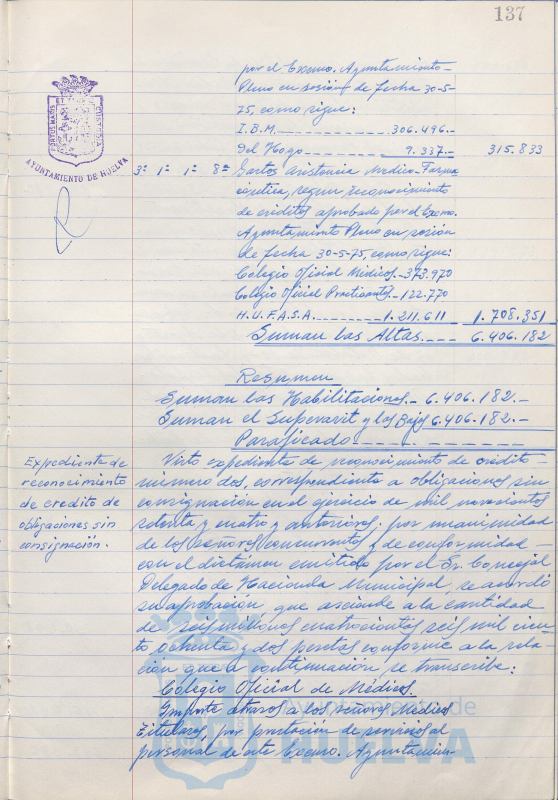 137
PORTUS MARIS CUSTODIA
AYUNTAMIENTO DE HUELVA
por el Excmo. Ayuntamiento-
Pleno en sesión de fecha 30-5-
75, como sigue:
I.B.M. 306.496.-
Del Hogo 9.337.- 315.833
3º 1º 1º 8º Gastos asistencia Medico-Farma
céutica, segun reconocimiento
de créditos aprobado por el Excmo.
Ayuntamiento Pleno en sesión
de fecha 30-5-75, como sigue:
Colegio Oficial Médicos.- 373.970
Colegio Oficial Practicantes.- 122.770
H.U.F.A.S.A. 1.211.611 1.708.351
Suman las Altas.--- 6.406.182
Resumen
Suman las Habilitaciones.- 6.406.182.-
Suman el Superavit y las Bajas 6.406.182.-
Parificado
Expediente de
reconocimiento
de credito de
obligaciones sin
consignación.
Visto expediente de reconocimiento de crédito-
número dos, correspondiente a obligaciones sin
consignación en el ejercicio de mil novecientos
setenta y cuatro y anteriores, por unanimidad
de los señores concurrentes y de conformidad-
con el dictámen emitido por el Sr. Concejal
Delegado de Hacienda Municipal, se acordó
su aprobación, que asciende a la cantidad
de seis millones cuatrocientas seis mil cien-
to ochenta y dos pesetas conforme a la rela-
ción que a continuación, se transcribe:
Colegio Oficial de Médicos.
Importe atrasos a los señores Médicos
Titulares, por prestación de servicios al
personal de este Excmo. Ayuntamien-
Ayuntamiento de
HUELVA